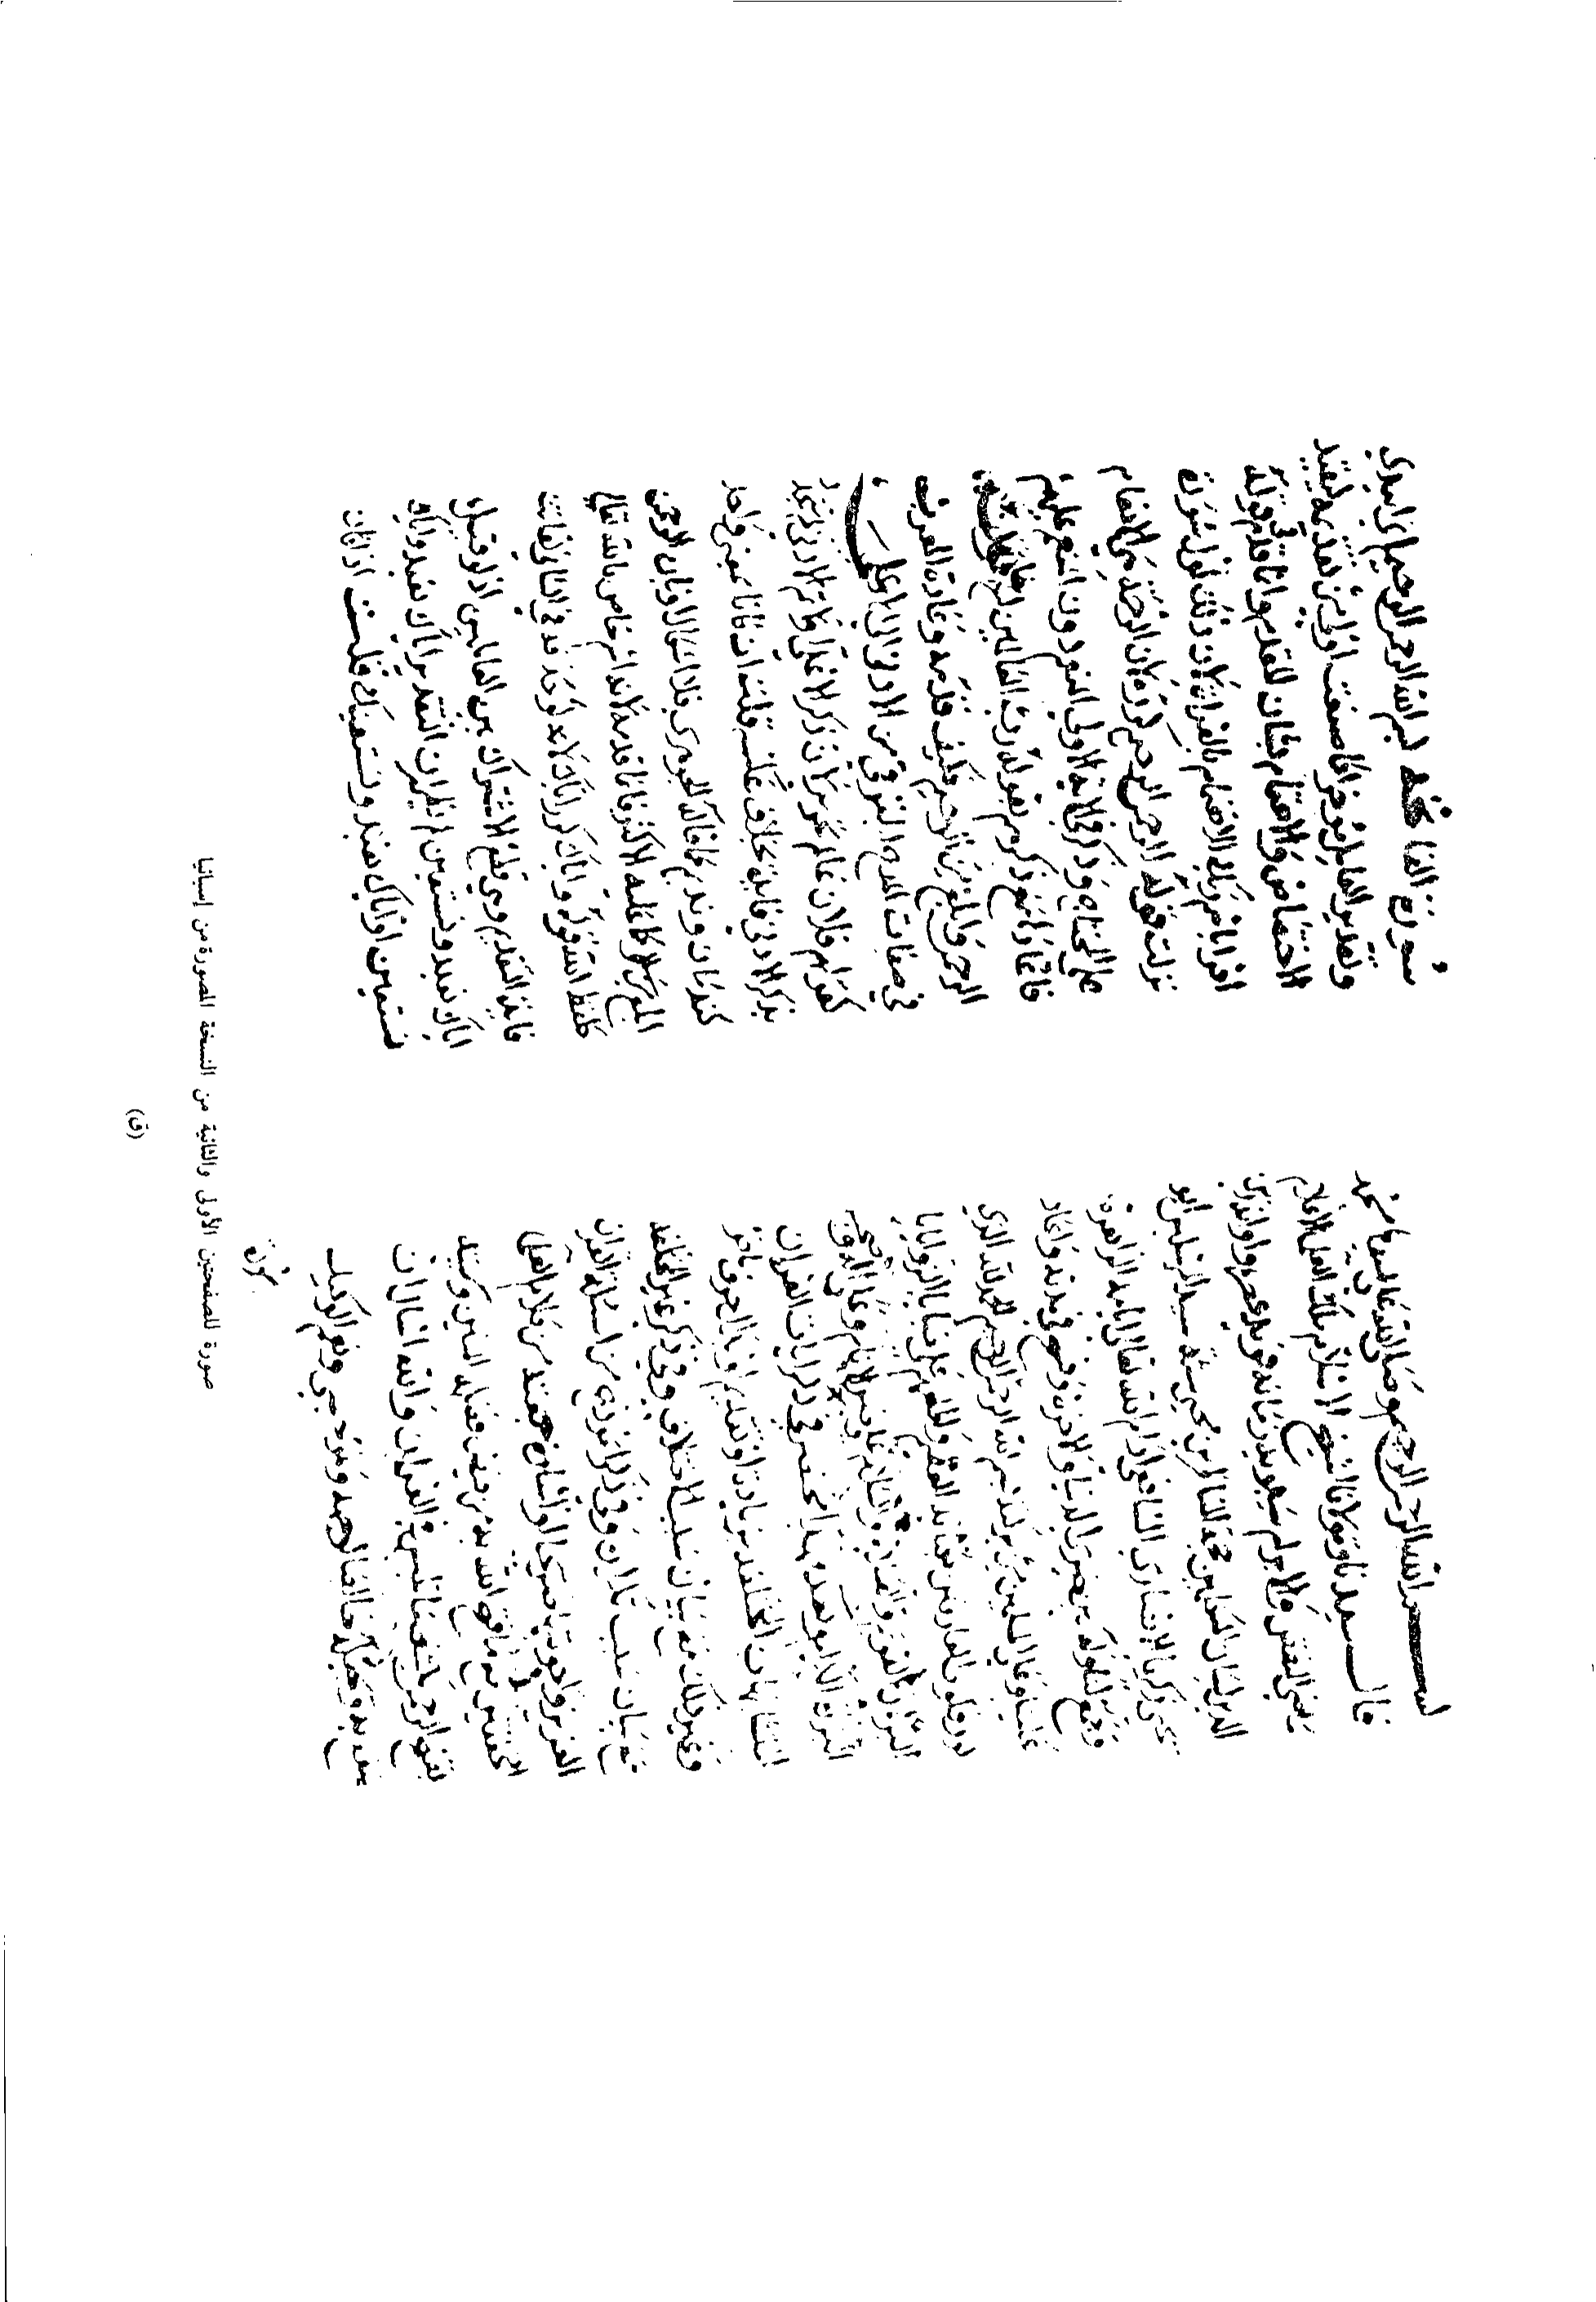 بسم الله الرحمن الرحيم وصلى الله على سيدنا محمد
قال سيدنا ومولانا الشيخ الامام ملك العلماء الاعلام
سيبويه زمانه فريد عصره واوانه زين
الدين لسان المتكلمين حجة المناظرين محيي سنة سيد المرسلين ابو
يحيى زكريا الانصاري الشافعي ادام الله تعالى ايامه الزاهرة
وجمع له بين خيري الدنيا والاخرة وفسح في مدته واعاد
علينا وعلى المسلمين من بركته بسم الله الرحمن الرحيم الحمد لله الذي
نور قلوب العارفين
والصلاة والسلام على سيد الانام وعلى اله وصحبه
البررة الكرام وبعد فهذا مختصر في ذكر ايات القران
المتشابهات المختلفة بزيادة او تقديم او ابدال حرف باخر
وغير ذلك مع بيان سبب الاختلاف وفي ذكر غير المختلفة
مع بيان سبب تكراره وفي ذكر انموذج من اسئلة القران
العزيز واجوبتها صريحا او اشارة جمعته من كلام العلماء
المحققين مما فتح الله به من فيض فضله المتين وسميته
بفتح الرحمن بكشف ما يلتبس في القران والله اسال ان
ينفع به وهو حسبي ونعم الوكيل
سورة
سورة الفاتحة بسم الله الرحمن الرحيم اي ابتدئ
وتقدير العامل مؤخرا كما صنعت اولى من تقديمه ليفيد
الاختصاص والاهتمام بشان المقدم وانما قدم في قوله
اقرا باسم ربك للاهتمام بالقراءة لان ذلك اول سورة
نزلت قوله الرحمن الرحيم كرره لان الرحمة هي الانعام
على المحتاج وذكر في الاية الاولى المنعم دون المنعم عليهم
فاعادها مع ذكرهم بقوله رب العالمين
الرحمن ابلغ من الرحيم فكيف قدمه وعادة العرب
في صفات المدح الترقي من الادنى الى الاعلى
كقولهم فلان عالم نحرير لان ذكر الاعلى ثم الادنى لم يتجدد
بذكر الادنى فايدة بخلاف عكسه قلت ان كانا بمعنى واحد
كندمان ونديم كما قاله الجوهري فلا اشكال او بان الرحمن
ابلغ كما عليه الاكثر فانما قدمه لانه اسم خاص بالله تعالى
كلفظ الله قوله واياك كرر اياك لانه لو حذفه في الثاني لفاتت
فايدة التقديم وهي قطع الاشتراك بين العاملين اذ لو قيل
اياك نعبد ونستعين لم يظهر ان التقدير اياك نعبد واياك
نستعين او اياك نعبد ونستعينك فان قلت اذا كان
صورة للصفحتين الأولى والثانية من النسخة المصورة من إسبانيا
(ق)